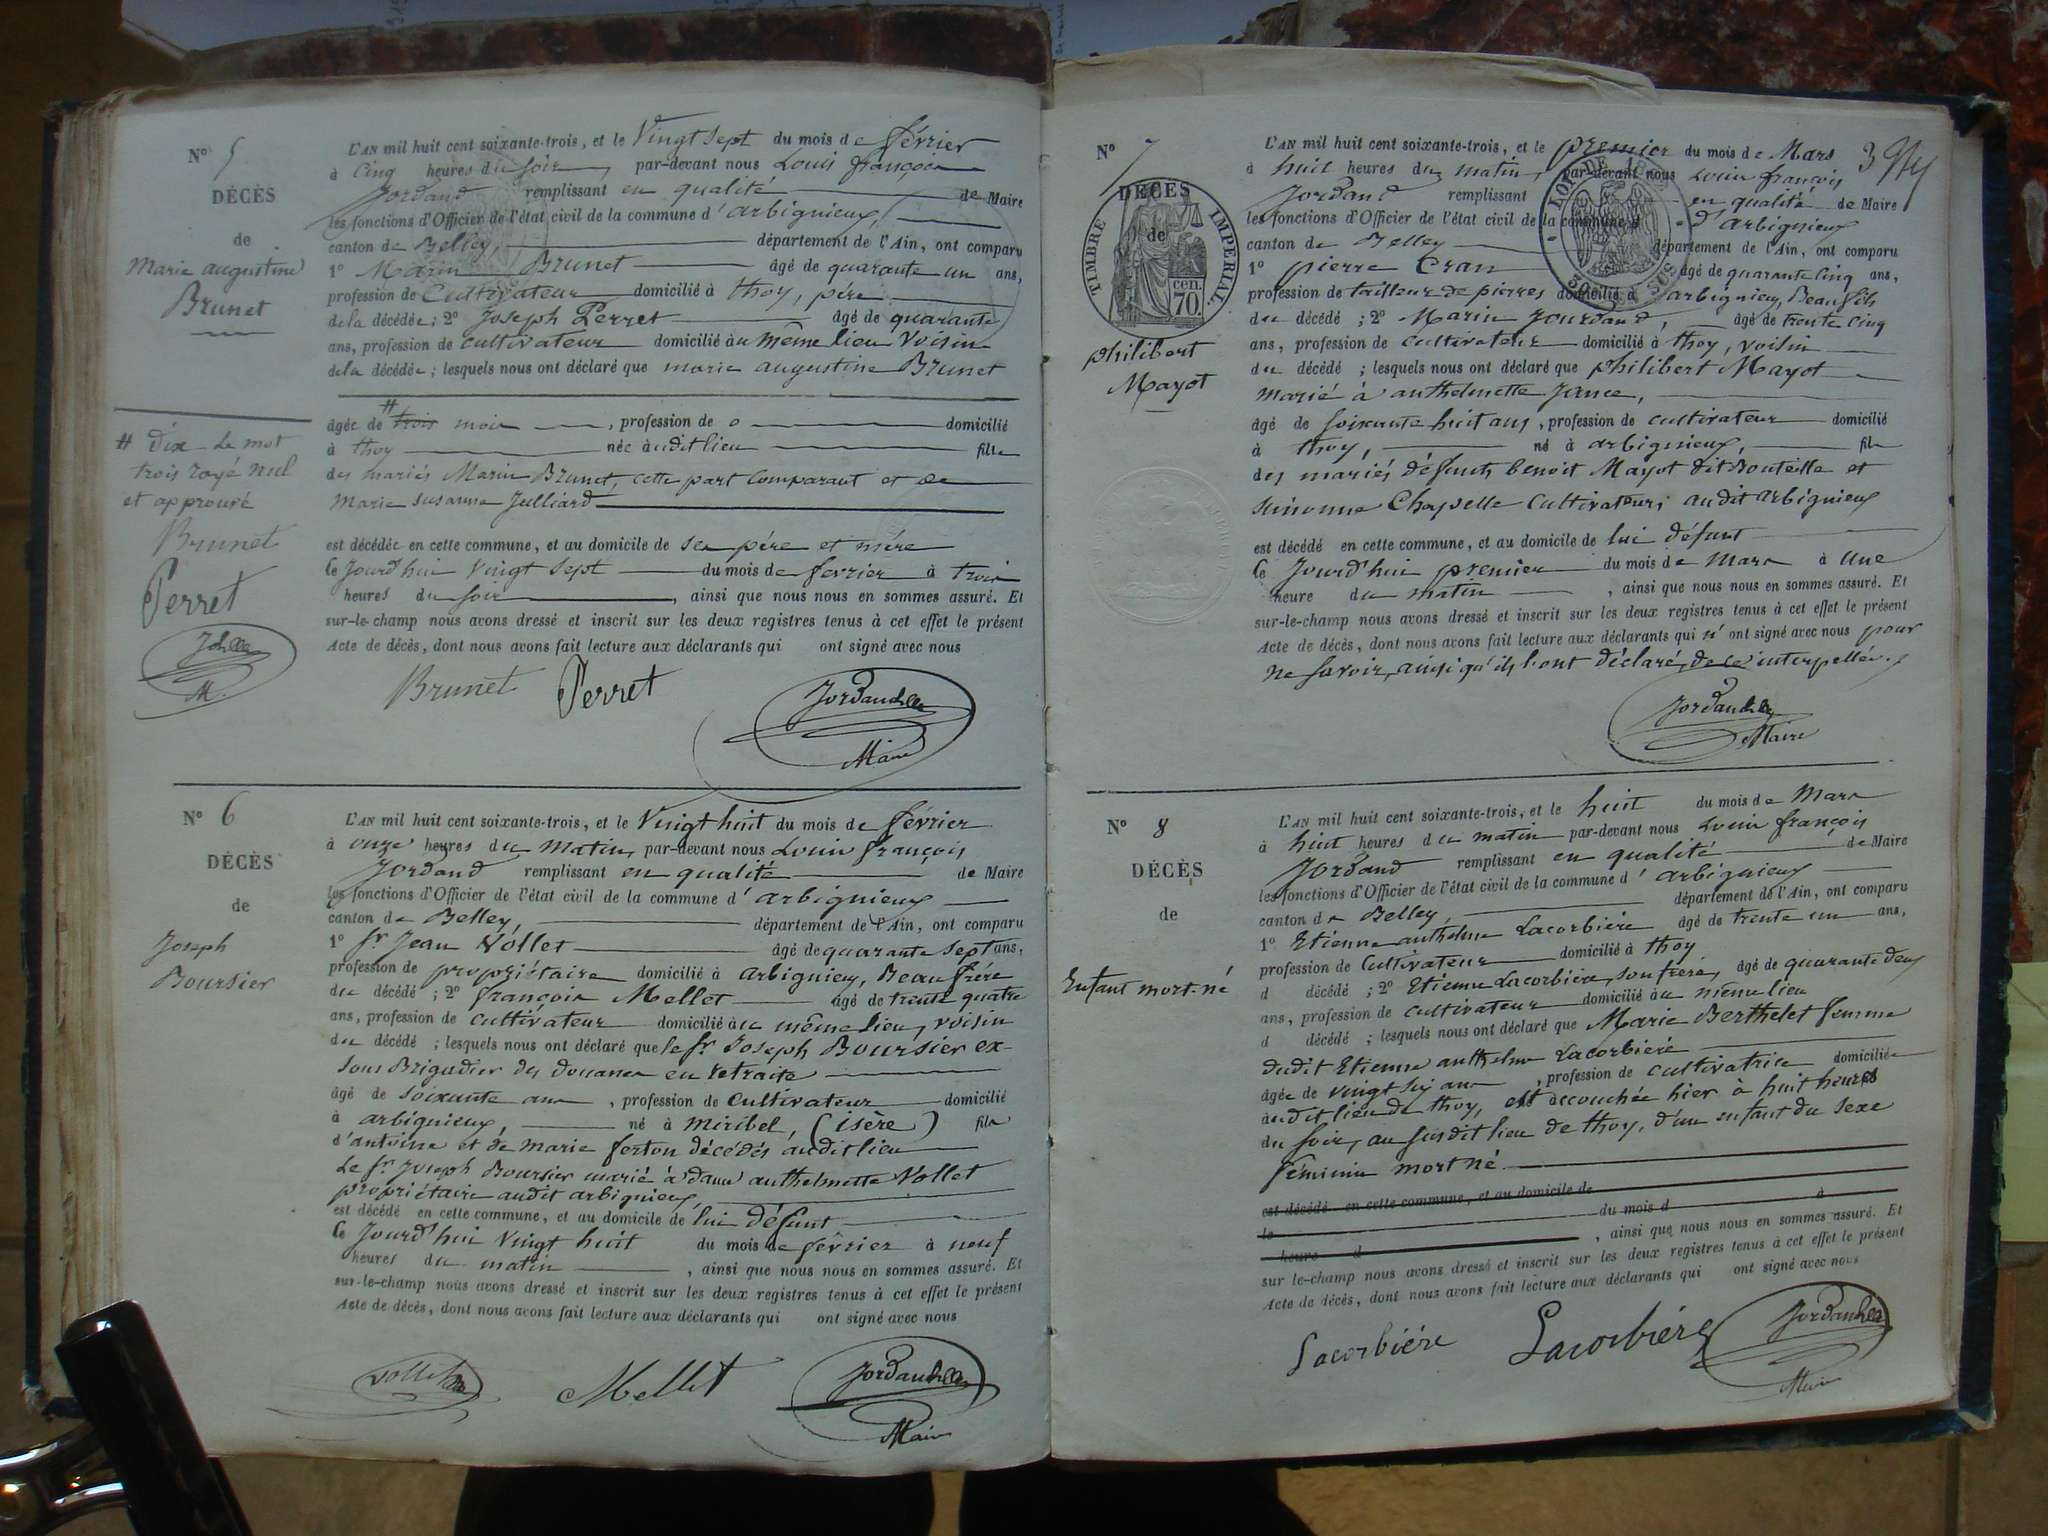 N° 5
DÉCÈS
de
Marie augustine
Brunet
L'AN mil huit cent soixante-trois, et le Vingt sept du mois de février
à Cinq heures du soir, par-devant nous Louis françois
Jordand remplissant en qualité de Maire
les fonctions d'Officier de l'état civil de la commune d'arbignieux,
canton de Belley, département de l'Ain, ont comparu
1° Marin Brunet âgé de quarante un ans,
profession de Cultivateur domicilié à thoy, père
de la décédée; 2° Joseph Perret âgé de quarante
ans, profession de cultivateur domicilié au même lieu Voisin
de la décédée; lesquels nous ont déclaré que marie augustine Brunet
âgée de # trois mois, profession de o domicilié
à thoy née audit lieu fille
des mariés Marin Brunet, cette part Comparant et de
Marie susanne Julliard
est décédée en cette commune, et au domicile de ses père et mère
Ce Jourd'hui vingt sept du mois de fevrier à trois
heures du soir, ainsi que nous nous en sommes assuré. Et
sur-le-champ nous avons dressé et inscrit sur les deux registres tenus à cet effet le présent
Acte de décès, dont nous avons fait lecture aux déclarants qui ont signé avec nous
Brunet Perret Jordand
Maire
# dix Le mot
trois rayé nul
et approuvé
Brunet
Perret
M.
N° 6
DÉCÈS
de
Joseph
Boursier
L'AN mil huit cent soixante-trois, et le Vingt huit du mois de février
à onze heures du Matin, par-devant nous Louis françois
Jordand remplissant en qualité de Maire
les fonctions d'Officier de l'état civil de la commune d'arbignieux
canton de Belley, département de l'Ain, ont comparu
1° Sr Jean Vollet âgé de quarante sept ans,
profession de propriétaire domicilié à arbignieu, Beau frère
du décédé; 2° françois Mellet âgé de trente quatre
ans, profession de cultivateur domicilié au même lieu, voisin
du décédé; lesquels nous ont déclaré que le Sr Joseph Boursier ex-
sous Brigadier des douanes en retraite
âgé de soixante ans, profession de cultivateur domicilié
à arbignieux, né à miribel, (isère) fils
d'antoine et de marie ferton décédés audit lieu
Le Sr Joseph Boursier marié à dame anthelmette Vollet
propriétaire audit arbignieux,
est décédé en cette commune, et au domicile de lui défunt
Ce Jourd'hui vingt huit du mois de février à neuf
heures du matin, ainsi que nous nous en sommes assuré. Et
sur-le-champ nous avons dressé et inscrit sur les deux registres tenus à cet effet le présent
Acte de décès, dont nous avons fait lecture aux déclarants qui ont signé avec nous
Vollet Mellet Jordand
Maire
3
N° 7
DÉCÈS
de
TIMBRE IMPÉRIAL.
70 cen.
philibert
Mayot
L'AN mil huit cent soixante-trois, et le premier du mois de Mars
à huit heures du matin, par-devant nous Louis françois
Jordand remplissant en qualité de Maire
les fonctions d'Officier de l'état civil de la commune d'arbignieux
canton de Belley département de l'Ain, ont comparu
1° pierre Cran âgé de quarante cinq ans,
profession de tailleur de pierres domicilié à arbignieu, Beau fils
du décédé; 2° Marin Jourdand, âgé de trente cinq
ans, profession de cultivateur domicilié à thoy, voisin
du décédé; lesquels nous ont déclaré que philibert Mayot
marié à anthelmette Jance,
âgé de soixante huit ans, profession de cultivateur domicilié
à thoy, né à arbignieux, fils
des mariés défunts benoit Mayot dit Bouteille et
Chapelle Cultivateurs audit arbignieux
est décédé en cette commune, et au domicile de lui défunt
Ce Jourd'hui premier du mois de Mars à Une
heure du matin, ainsi que nous nous en sommes assuré. Et
sur-le-champ nous avons dressé et inscrit sur les deux registres tenus à cet effet le présent
Acte de décès, dont nous avons fait lecture aux déclarants qui n'ont signé avec nous pour
ne savoir, ainsi qu'ils l'ont déclaré, de ce interpellés.
Jordand
Maire
N° 8
DÉCÈS
de
Enfant mort-né
L'AN mil huit cent soixante-trois, et le huit du mois de Mars
à huit heures du matin par-devant nous Louis françois
Jordand remplissant en qualité de Maire
les fonctions d'Officier de l'état civil de la commune d'arbignieux
canton de Belley, département de l'Ain, ont comparu
1° Etienne anthelme Lacorbière âgé de trente un ans,
profession de Cultivateur domicilié à thoy
d décédé; 2° Etienne Lacorbière, son frère, âgé de quarante deux
ans, profession de cultivateur domicilié au même lieu
d décédé; lesquels nous ont déclaré que Marie Berthelet femme
dudit Etienne anthelme Lacorbière
âgée de vingt six ans, profession de cultivatrice domiciliée
audit lieu de thoy, est accouchée hier à huit heures
du soir, au susdit lieu de thoy, d'un enfant du sexe
féminin mort né
est décédé en cette commune, et au domicile de
le du mois d à
heure d, ainsi que nous nous en sommes assuré. Et
sur-le-champ nous avons dressé et inscrit sur les deux registres tenus à cet effet le présent
Acte de décès, dont nous avons fait lecture aux déclarants qui ont signé avec nous
Lacorbière Lacorbière Jordand
Maire